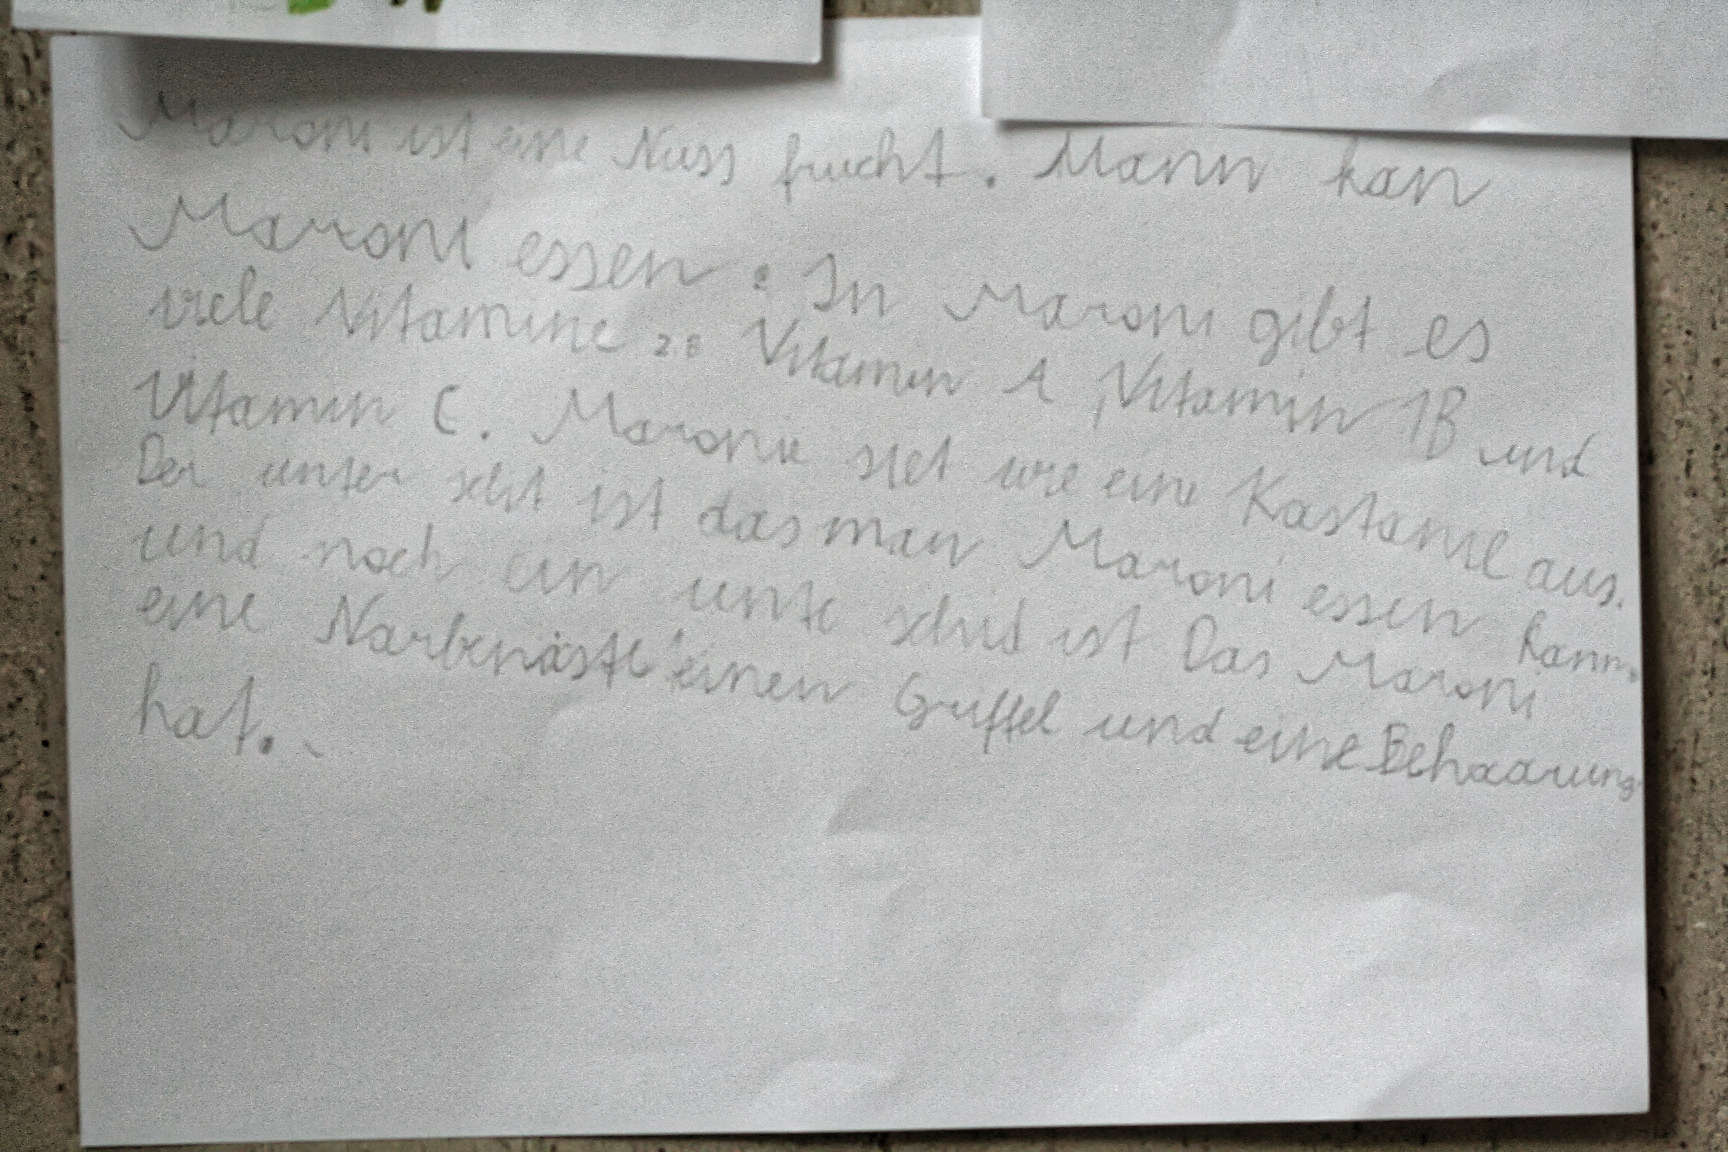 Maroni ist eine Nuss frucht. Mann kan
Maroni essen. In Maroni gibt es
viele Vitamine z.B Vitamin A, Vitamin 1B und
Vitamin C. Maronie siet wie eine Kastanie aus.
Der unter schit ist das man Maroni essen kann.
und noch ein unte schid ist Das Maroni
eine Narbenäste einen Griffel und eine Behaarung
hat.